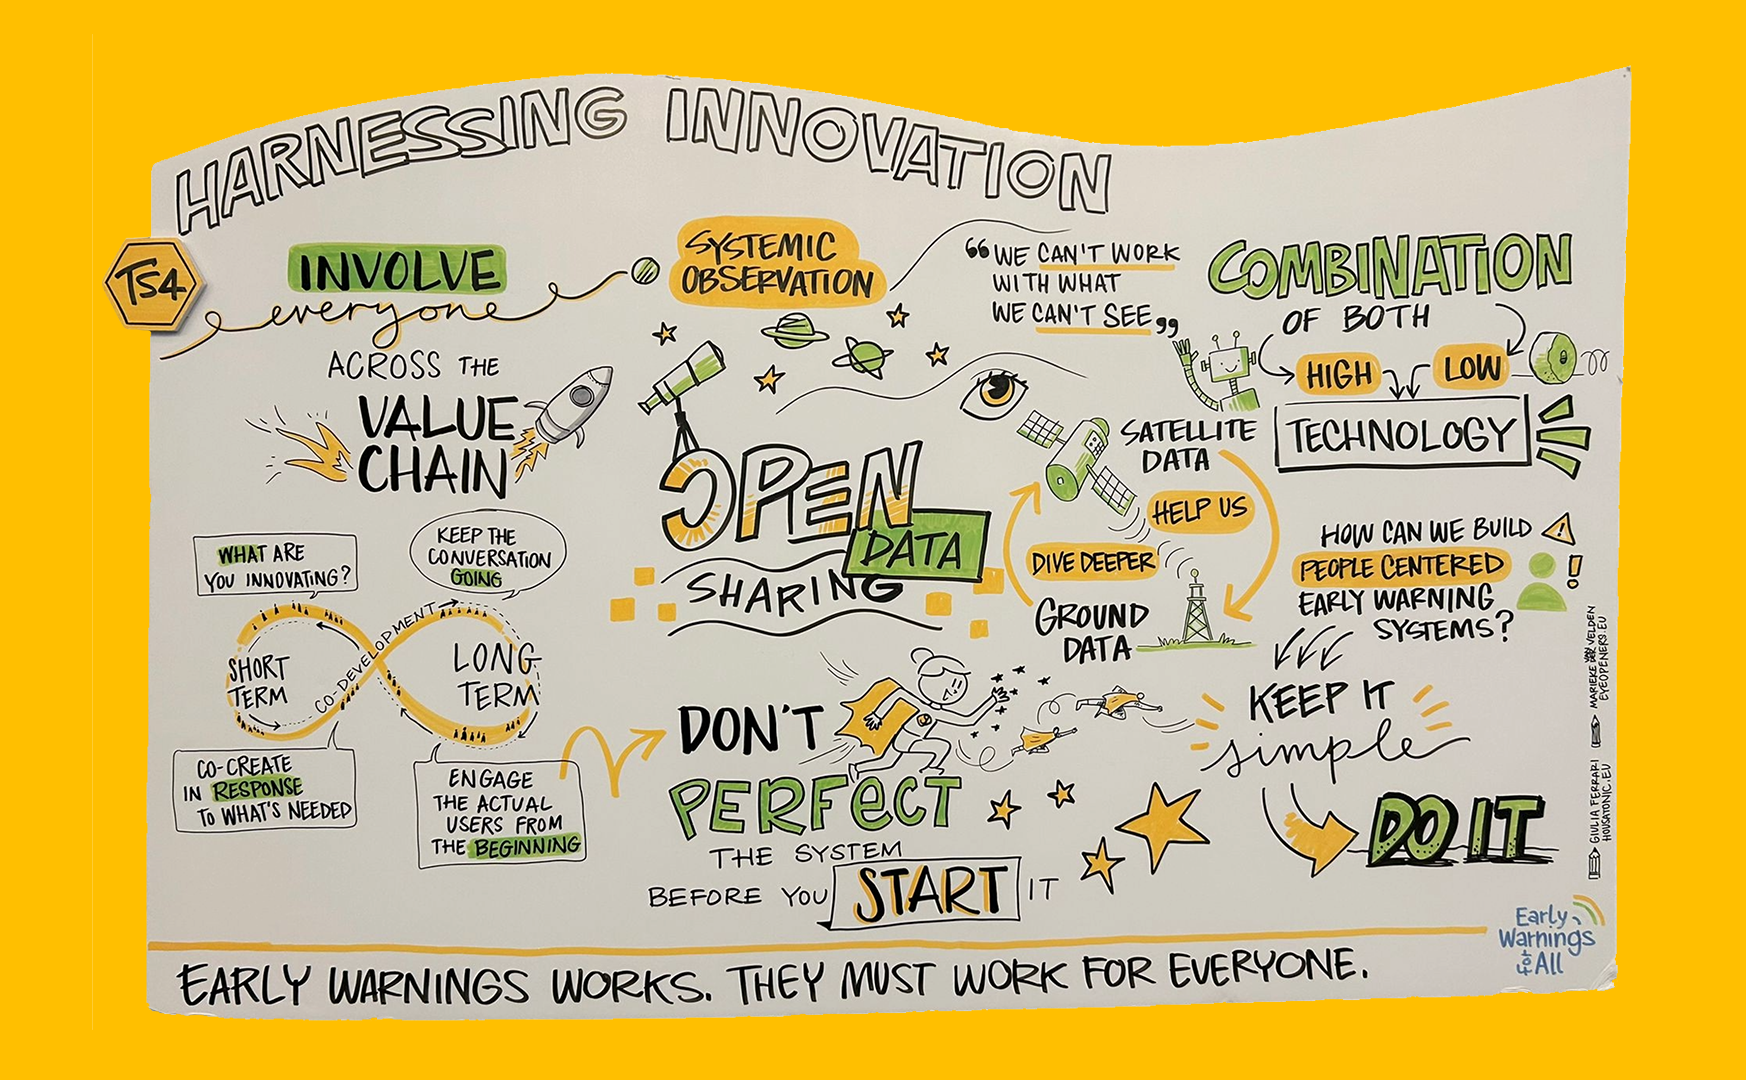 HARNESSING INNOVATION
TS4
INVOLVE
everyone
ACROSS THE
VALUE
CHAIN
WHAT ARE
YOU INNOVATING?
KEEP THE
CONVERSATION
GOING
SHORT
TERM
CO-DEVELOPMENT
LONG
TERM
CO-CREATE
IN RESPONSE
TO WHAT'S NEEDED
ENGAGE
THE ACTUAL
USERS FROM
THE BEGINNING
SYSTEMIC
OBSERVATION
OPEN
DATA
SHARING
DON'T
PERFECT
THE SYSTEM
BEFORE YOU START IT
"WE CAN'T WORK
WITH WHAT
WE CAN'T SEE"
SATELLITE
DATA
HELP US
DIVE DEEPER
GROUND
DATA
COMBINATION
OF BOTH
HIGH LOW
TECHNOLOGY
HOW CAN WE BUILD
PEOPLE CENTERED
EARLY WARNING
SYSTEMS?
KEEP IT
simple
DO IT
MARIEKE VAN DER VELDEN
EYEOPENERS.EU
GIULIA FERRARI
HOUSATONIC.EU
Early
Warnings
for
All
EARLY WARNINGS WORKS. THEY MUST WORK FOR EVERYONE.